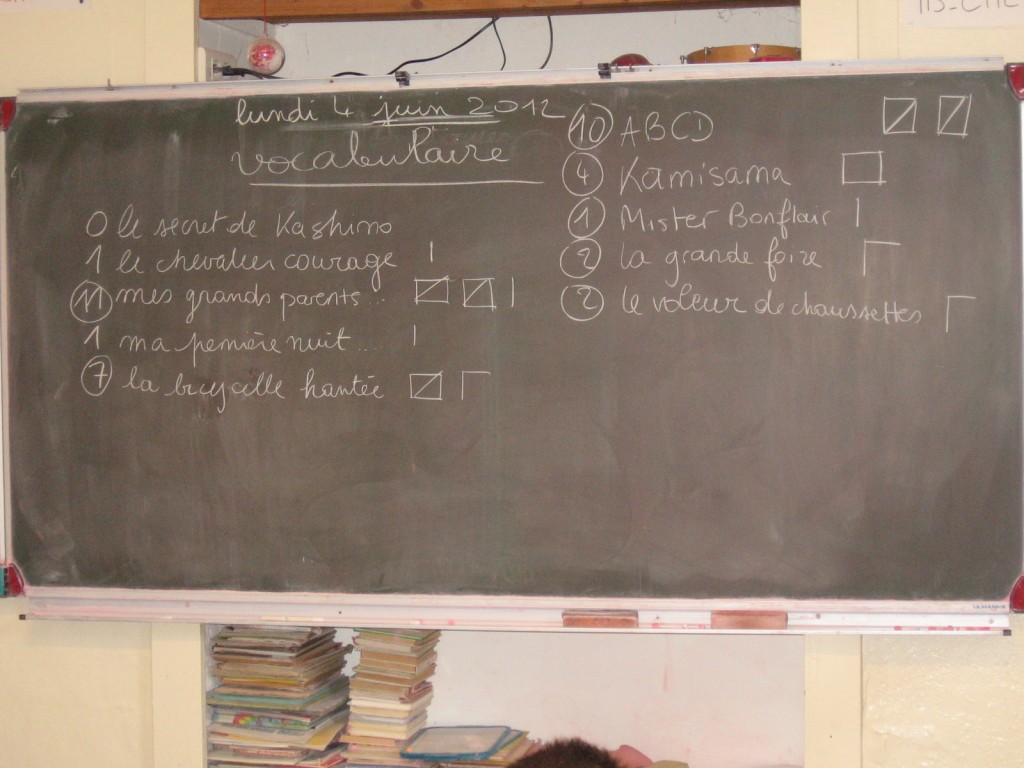 lundi 4 juin 2012
vocabulaire
0 le secret de Kashino
1 le chevalier courage
11 mes grands parents...
1 ma pemière nuit....
7 la bicyclette hantée
10 ABCD
4 Kamisama
1 Mister Bonflair
2 la grande foire
2 le voleur de chaussettes